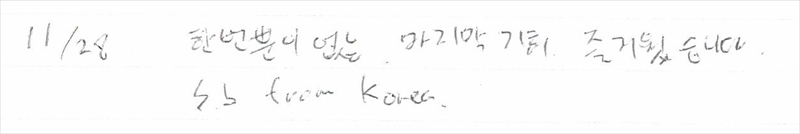 11/28 한번뿐이 없는 마지막 기회. 즐거웠습니다.
S.b from Korea.